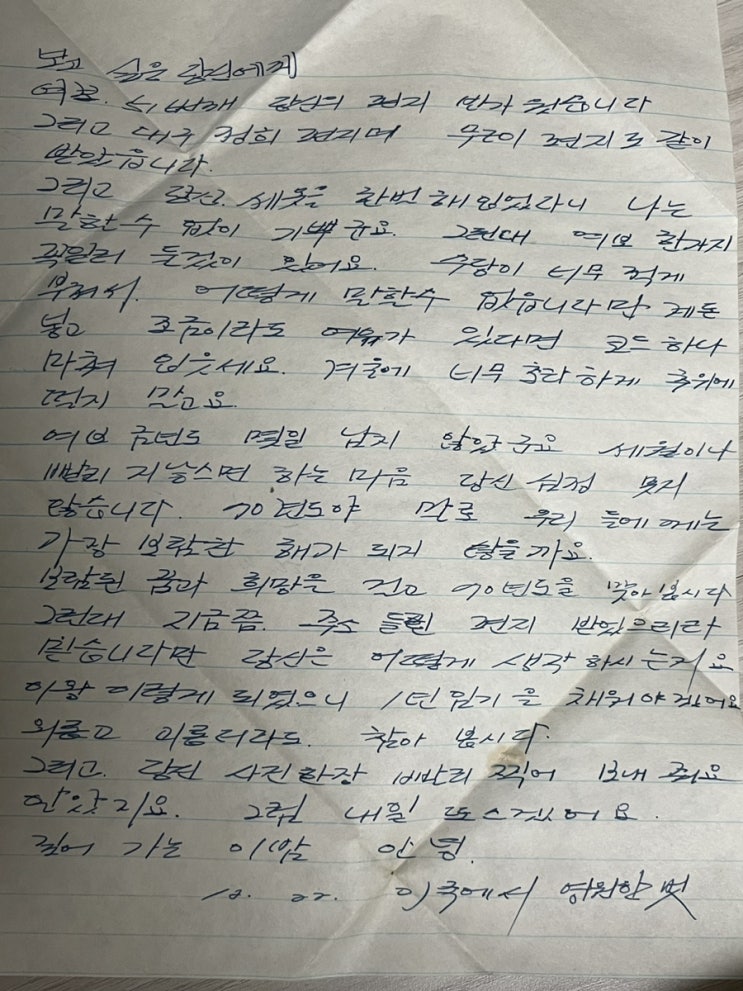 보고 싶은 당신에게
여보. 두번째 당신의 편지 반가 웠습니다
그리고 대구 정희 편지며 무근이 편지도 같이
받았읍니다.
그리고 당신. 세옷을 한번 해 입었다니 나는
말할수 없이 기쁘군요. 그런대 여보 한가지
꼭일러 둘것이 있어요. 수량이 너무 적게
부쳐서. 어떻게 말할수 없읍니다만 제돈
넣고 조금이라도 여유가 있다면 코드 하나
마쳐 입으세요. 겨울에 너무 초라하게 추위에
떨지 말고요
여보 금년도 몇일 남지 않았군요 세월이나
빨리 지났스면 하는 마음 당신 심정 못지
않습니다. 70년도야 말로 우리 들에게는
가장 보람찬 해가 되지 않을까요.
보람된 꿈과 희망을 걸고 70년도을 맞아 봅시다
그런대 지금쯤. 주소 틀린 편지 받았으리라
믿습니다만 당신은 어떻게 생각 하시는지요
이왕 이렇게 되었으니 1년 임기을 채워야겠어요
외롭고 괴롭더라도. 참아 봅시다.
그리고. 당신 사진한장 빨리 찍어 보내 줘요
알았지요. 그럼 내일 또 쓰겠어요.
깊어 가는 이밤 안녕.
12. 22. 이국에서 영원한 벗